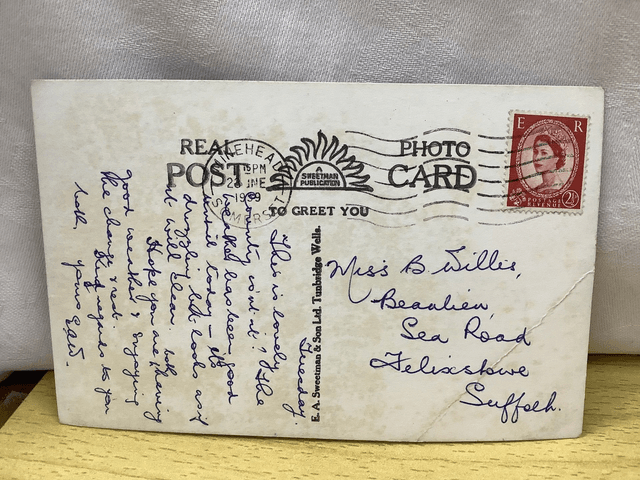 REAL PHOTO
POST CARD
A
SWEETMAN
PUBLICATION
TO GREET YOU
MINEHEAD
15PM
23 JNE
SOMERSET
E R
POSTAGE
REVENUE
2½
E. A. Sweetman & Son Ltd. Tunbridge Wells.
Tuesday.
This is lovely
county isn't it? The
weather has been good
until today – it's
drizzling but looks as if
it will clear.
Hope you are both having
good weather & enjoying
the change & rest.
Kind regards to you
both, yours
Miss B. Willis,
Beaulieu,
Sea Road
Felixstowe
Suffolk.